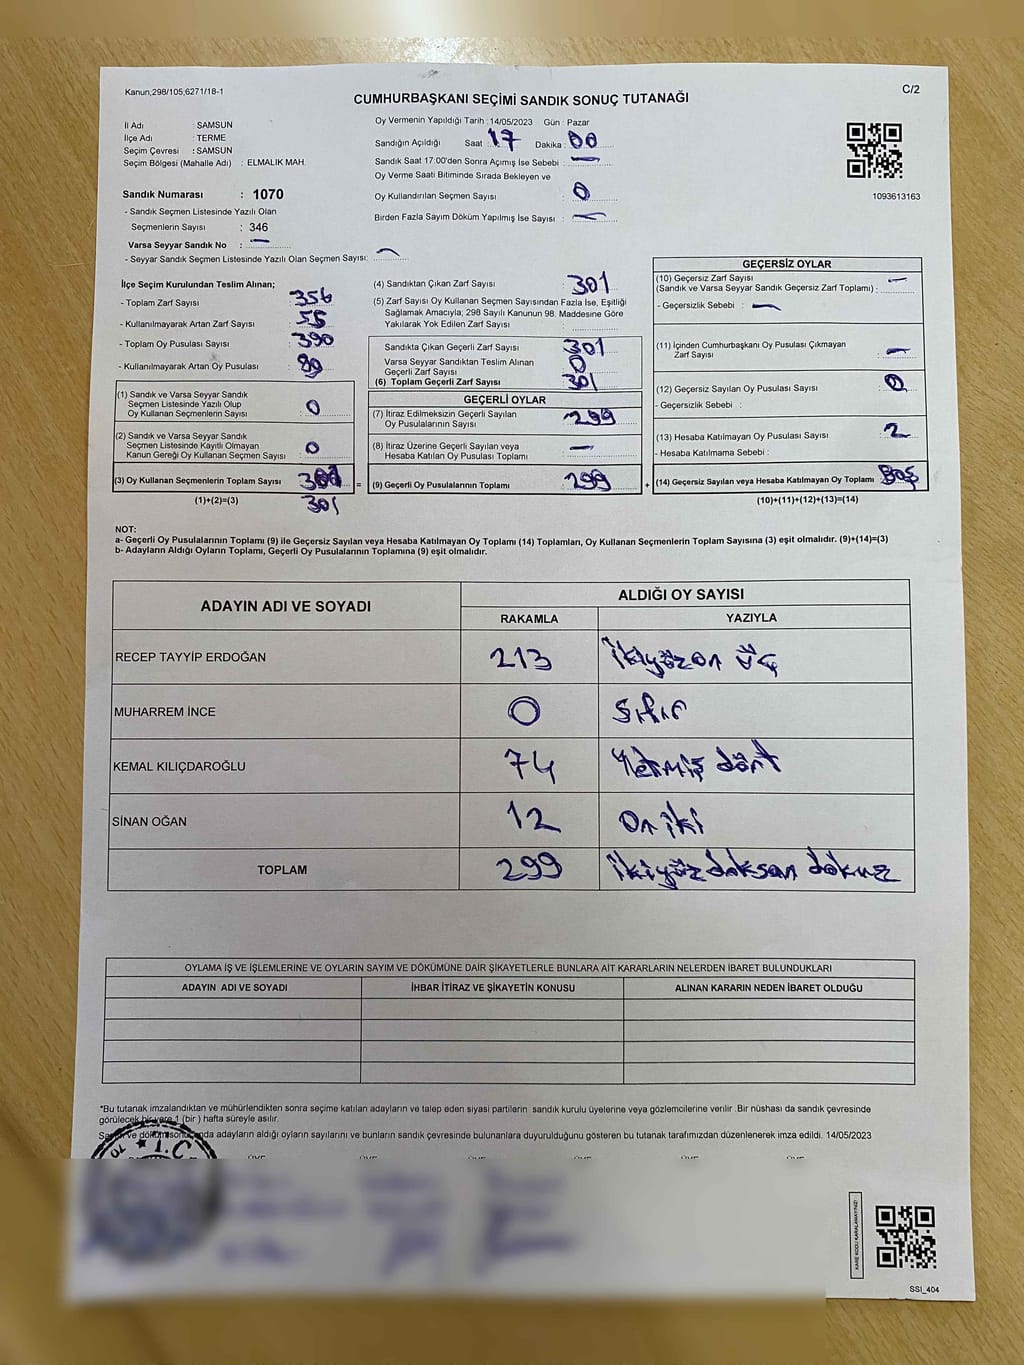 Kanun;298/105;6271/18-1
C/2
CUMHURBAŞKANI SEÇİMİ SANDIK SONUÇ TUTANAĞI
İl Adı : SAMSUN
İlçe Adı : TERME
Seçim Çevresi : SAMSUN
Seçim Bölgesi (Mahalle Adı) : ELMALIK MAH.
Sandık Numarası : 1070
- Sandık Seçmen Listesinde Yazılı Olan
Seçmenlerin Sayısı : 346
Varsa Seyyar Sandık No : —
- Seyyar Sandık Seçmen Listesinde Yazılı Olan Seçmen Sayısı: —
Oy Vermenin Yapıldığı Tarih : 14/05/2023 Gün : Pazar
Sandığın Açıldığı Saat : 17 Dakika : 00
Sandık Saat 17:00'den Sonra Açımış İse Sebebi : —
Oy Verme Saati Bitiminde Sırada Bekleyen ve
Oy Kullandırılan Seçmen Sayısı : 0
Birden Fazla Sayım Döküm Yapılmış İse Sayısı : —
1093613163
İlçe Seçim Kurulundan Teslim Alınan;
- Toplam Zarf Sayısı : 356
- Kullanılmayarak Artan Zarf Sayısı : 55
- Toplam Oy Pusulası Sayısı : 390
- Kullanılmayarak Artan Oy Pusulası : 89
(1) Sandık ve Varsa Seyyar Sandık
Seçmen Listesinde Yazılı Olup
Oy Kullanan Seçmenlerin Sayısı : 0
(2) Sandık ve Varsa Seyyar Sandık
Seçmen Listesinde Kayıtlı Olmayan
Kanun Gereği Oy Kullanan Seçmen Sayısı : 0
(3) Oy Kullanan Seçmenlerin Toplam Sayısı : 301
(1)+(2)=(3) 301
(4) Sandıktan Çıkan Zarf Sayısı : 301
(5) Zarf Sayısı Oy Kullanan Seçmen Sayısından Fazla İse, Eşitliği
Sağlamak Amacıyla; 298 Sayılı Kanunun 98. Maddesine Göre
Yakılarak Yok Edilen Zarf Sayısı :
Sandıkta Çıkan Geçerli Zarf Sayısı : 301
Varsa Seyyar Sandıktan Teslim Alınan
Geçerli Zarf Sayısı : 0
(6) Toplam Geçerli Zarf Sayısı : 301
GEÇERLİ OYLAR
(7) İtiraz Edilmeksizin Geçerli Sayılan
Oy Pusulalarının Sayısı : 299
(8) İtiraz Üzerine Geçerli Sayılan veya
Hesaba Katılan Oy Pusulası Toplamı : —
= (9) Geçerli Oy Pusulalarının Toplamı : 299 +
GEÇERSİZ OYLAR
(10) Geçersiz Zarf Sayısı
(Sandık ve Varsa Seyyar Sandık Geçersiz Zarf Toplamı) : —
- Geçersizlik Sebebi : —
(11) İçinden Cumhurbaşkanı Oy Pusulası Çıkmayan
Zarf Sayısı : —
(12) Geçersiz Sayılan Oy Pusulası Sayısı : 0
- Geçersizlik Sebebi :
(13) Hesaba Katılmayan Oy Pusulası Sayısı : 2
- Hesaba Katılmama Sebebi :
(14) Geçersiz Sayılan veya Hesaba Katılmayan Oy Toplamı : BOŞ
(10)+(11)+(12)+(13)=(14)
NOT:
a- Geçerli Oy Pusulalarının Toplamı (9) ile Geçersiz Sayılan veya Hesaba Katılmayan Oy Toplamı (14) Toplamları, Oy Kullanan Seçmenlerin Toplam Sayısına (3) eşit olmalıdır. (9)+(14)=(3)
b- Adayların Aldığı Oyların Toplamı, Geçerli Oy Pusulalarının Toplamına (9) eşit olmalıdır.
ADAYIN ADI VE SOYADI
ALDIĞI OY SAYISI
RAKAMLA YAZIYLA
RECEP TAYYİP ERDOĞAN 213 ikiyüzon üç
MUHARREM İNCE 0 Sıfır
KEMAL KILIÇDAROĞLU 74 Yetmiş dört
SİNAN OĞAN 12 On iki
TOPLAM 299 ikiyüz doksan dokuz
OYLAMA İŞ VE İŞLEMLERİNE VE OYLARIN SAYIM VE DÖKÜMÜNE DAİR ŞİKAYETLERLE BUNLARA AİT KARARLARIN NELERDEN İBARET BULUNDUKLARI
ADAYIN ADI VE SOYADI İHBAR İTİRAZ VE ŞİKAYETİN KONUSU ALINAN KARARIN NEDEN İBARET OLDUĞU
*Bu tutanak imzalandıktan ve mühürlendikten sonra seçime katılan adayların ve talep eden siyasi partilerin sandık kurulu üyelerine veya gözlemcilerine verilir .Bir nüshası da sandık çevresinde
görülecek bir yere 1 (bir ) hafta süreyle asılır.
ve döküm sonucunda adayların aldığı oyların sayılarını ve bunların sandık çevresinde bulunanlara duyurulduğunu gösteren bu tutanak tarafımızdan düzenlenerek imza edildi. 14/05/2023
T.C
KARE KODU KARALAMAYINIZ!
SSI_404